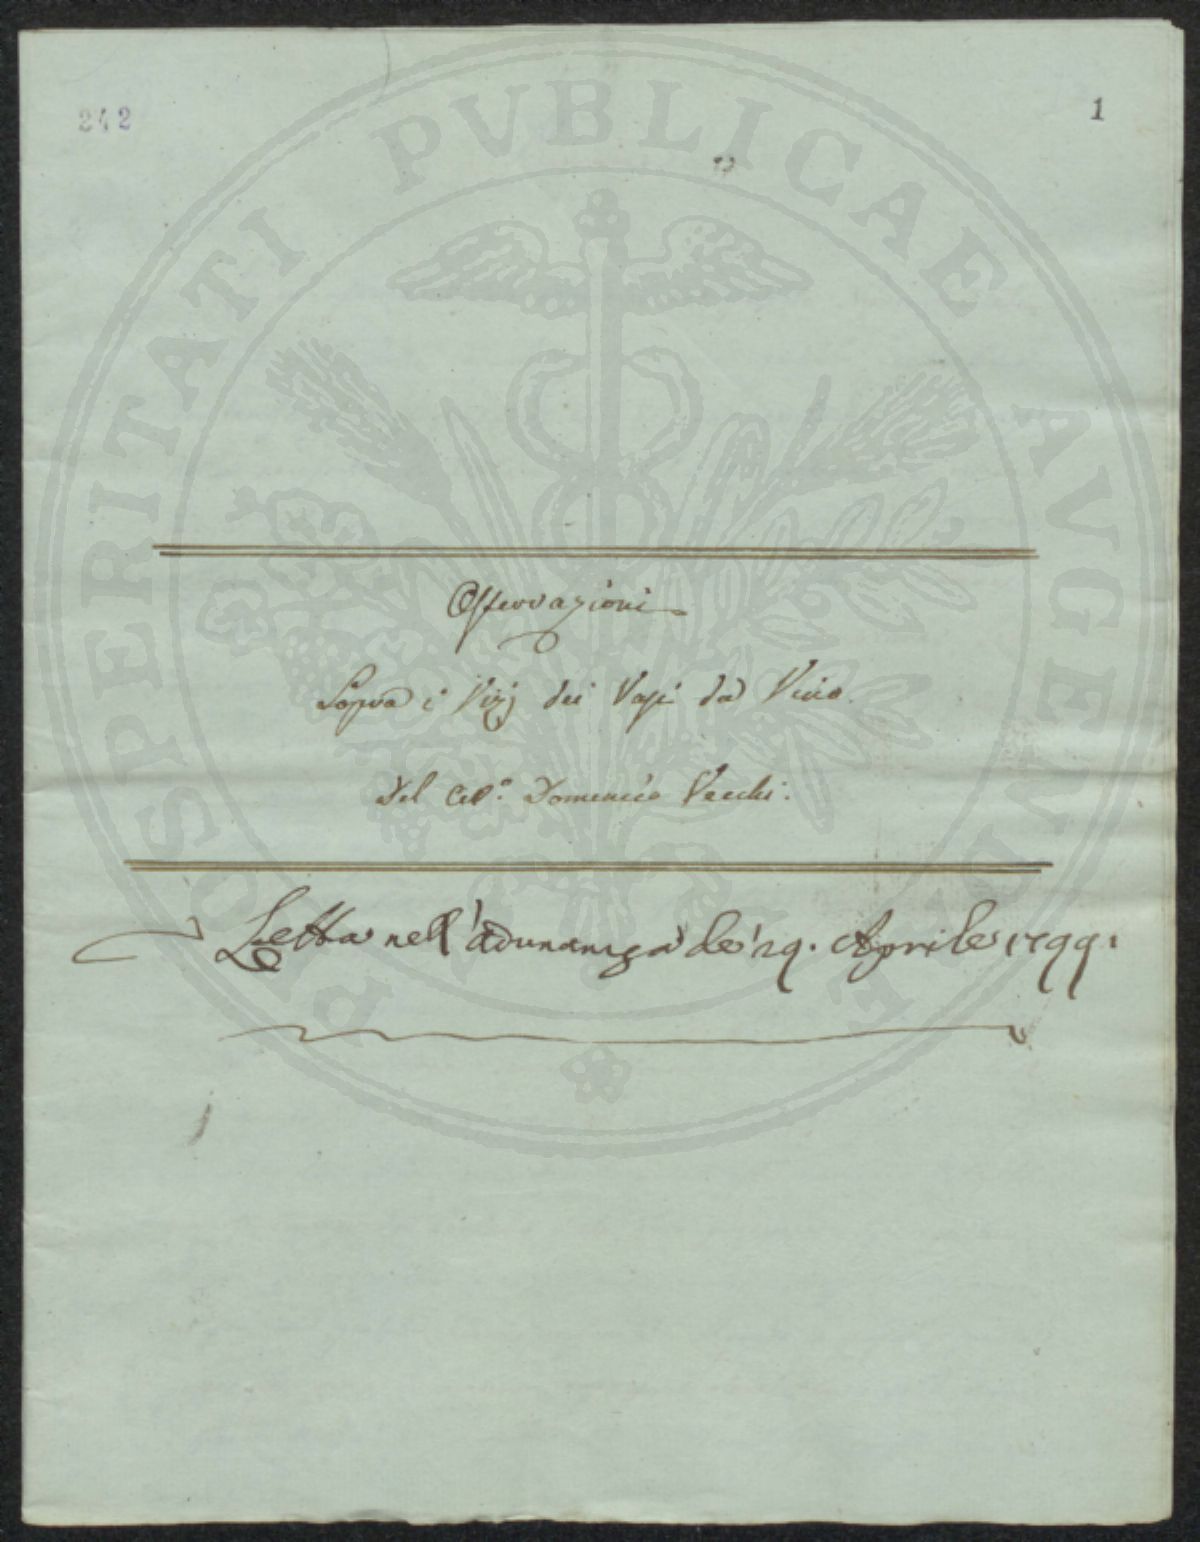 242
1
PROSPERITATI PVBLICAE AVGENDAE
Osservazioni
Sopra i Vizj dei Vasi da Vino.
Del Citt.º Domenico Vecchi.
Letta nell'adunanza de' 29. Aprile 1799.